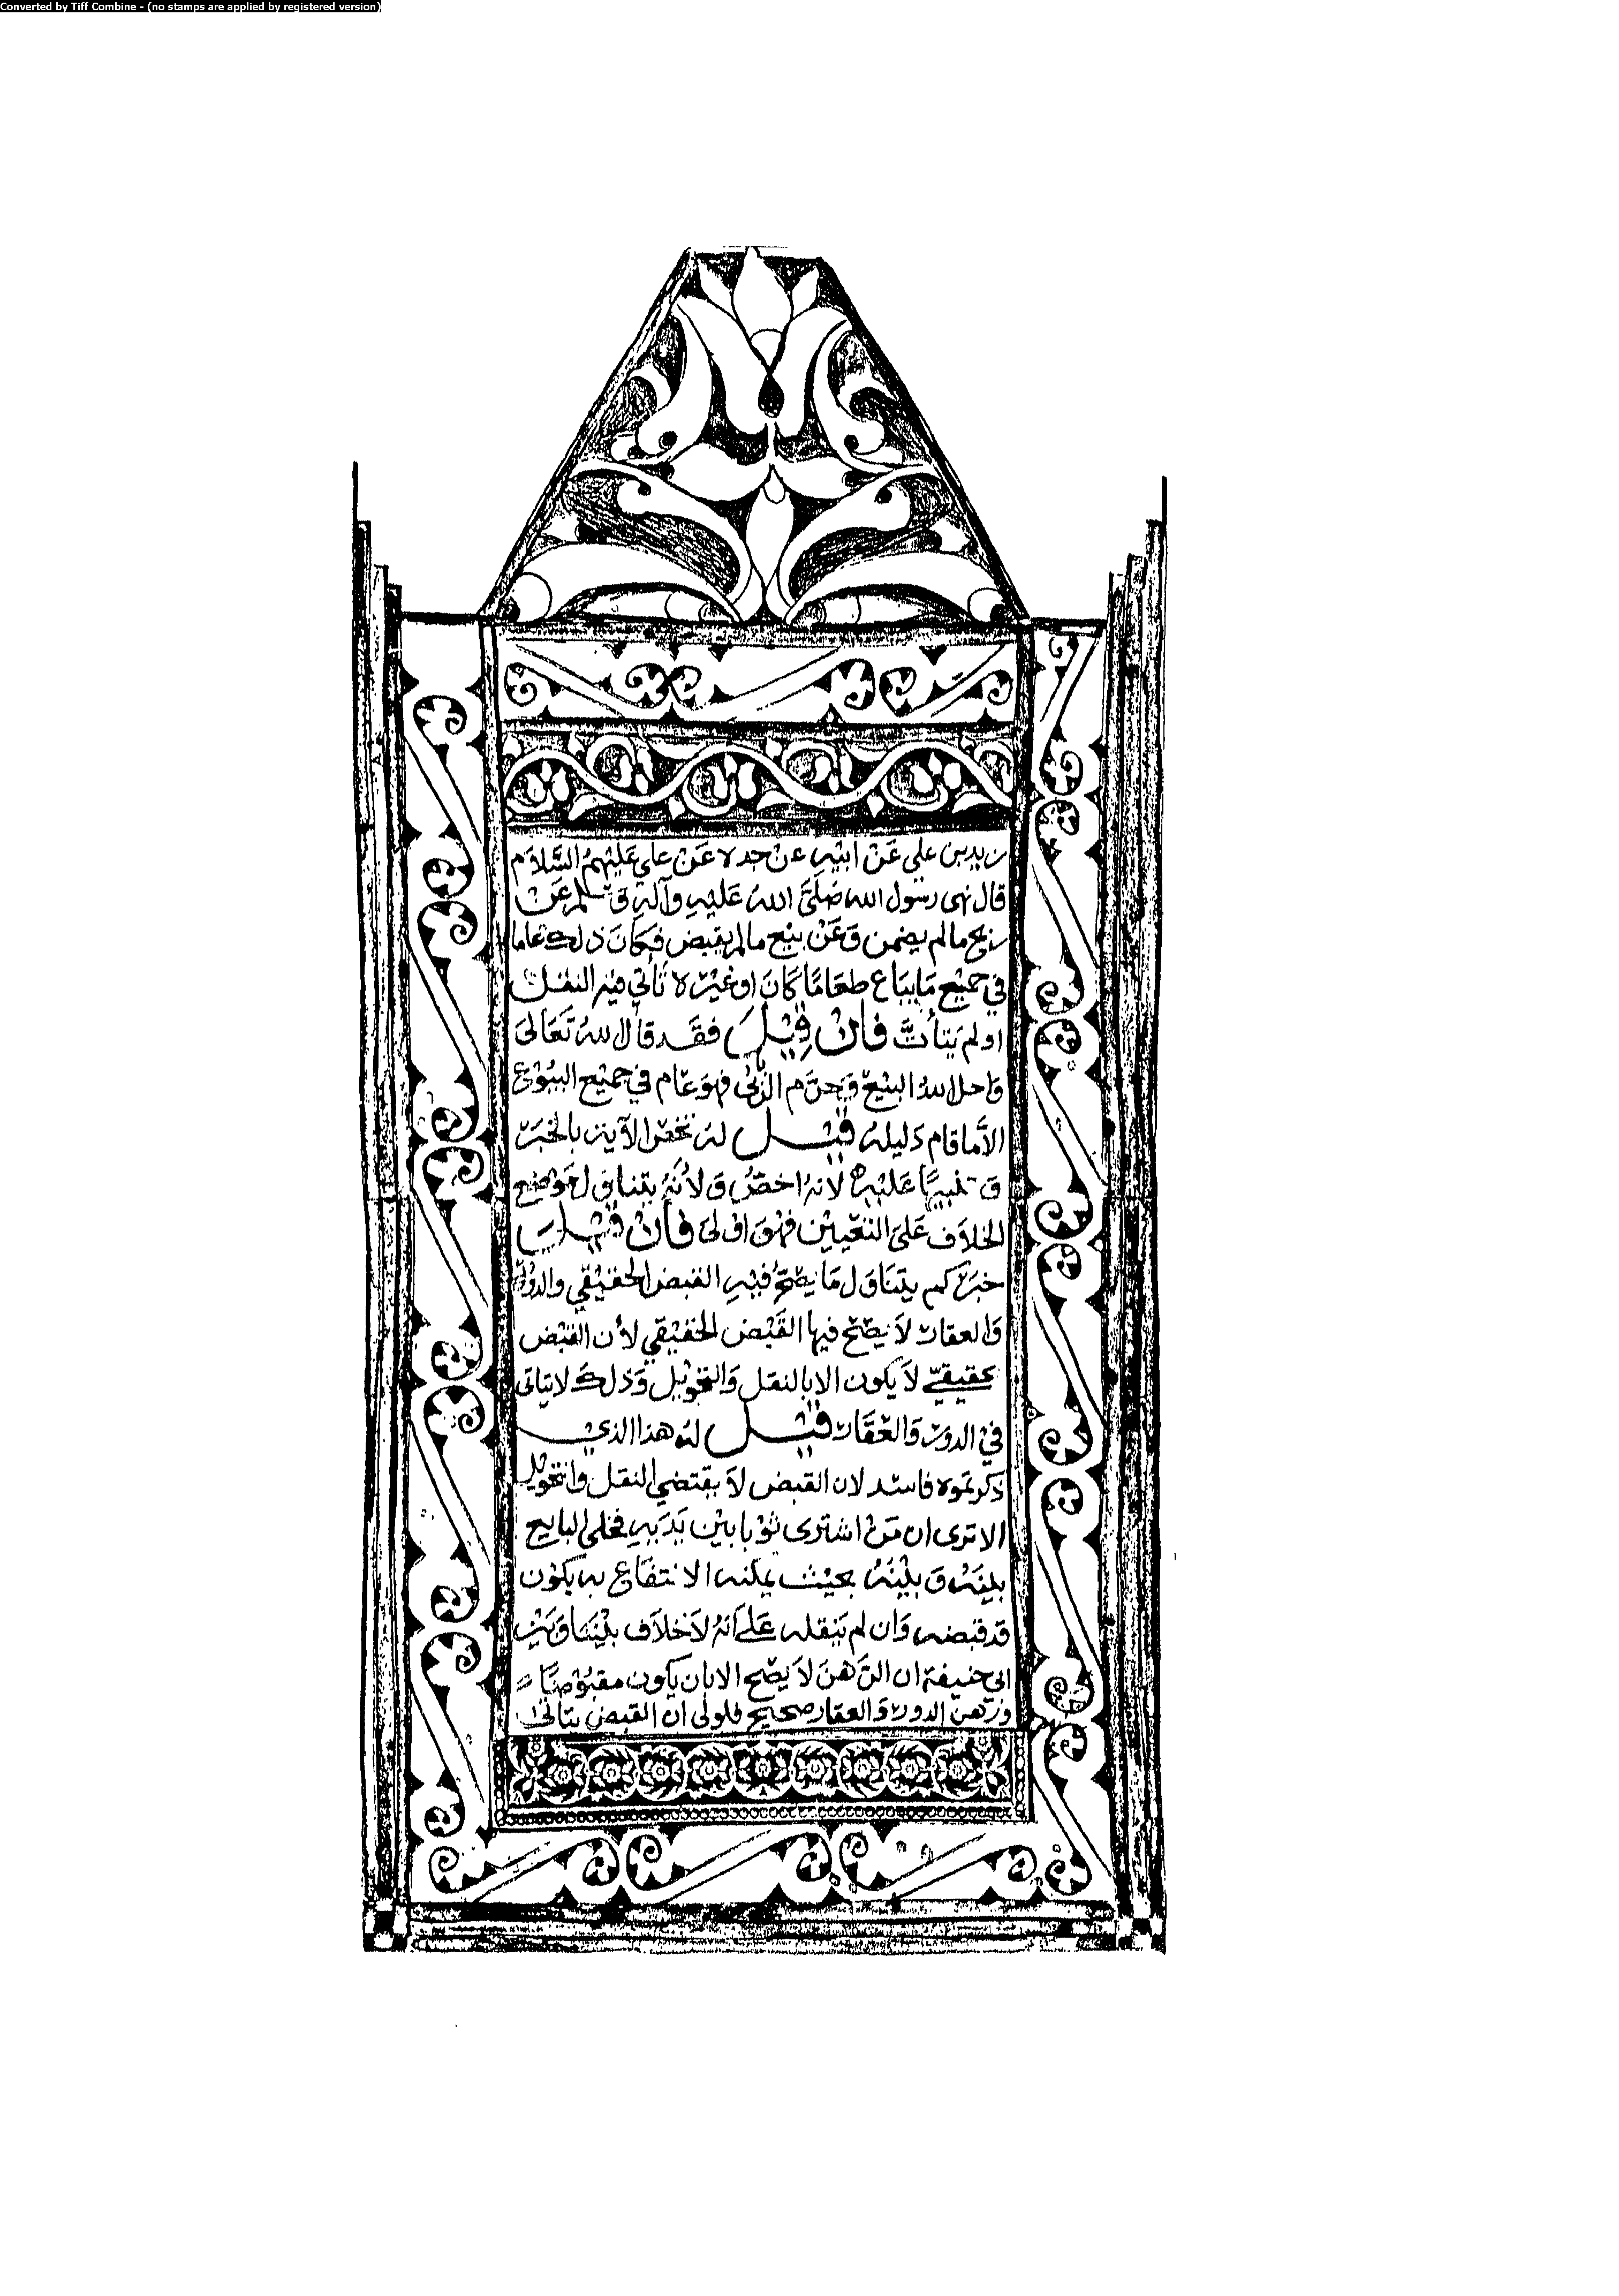 Converted by Tiff Combine - (no stamps are applied by registered version)
زيد بن علي عَنْ ابيْهِ عنْ جده عَنْ علي عَليْهمُ السَّلاَم
قال نهى رسول الله صَلىَّ اللهُ عَليْهِ وآلهِ وَسلم عَنْ
ربح مالم يضمن وَعَنْ بيْع مالم يقبض فكانَ ذلك عاما
في جميْع مَا يباع طعَامًا كَانَ اوغيْرَه تأتي فيْه النقل
اولم يَتأتَّ فانْ قِيْلَ فقَد قال اللهُ تَعَالىَ
وَاحل اللهُ البيْع وَحرَّم الرِّبى فهوَ عَام في جميْع البيُوْع
الاَّ ما قام دَليلهُ قيْل لهُ نخصّ الآية بالخبَر
وَ عَليْه لأنهُ اخصُّ وَلأنَّهُ يتناوَل موْضع
الخلاَف عَلىَ التعْييْن فهْوَ اوْلىَ فاَنْ قيْلَ
خبرَكم يتَناوَل مَا يَصحُّ فيْهِ القبض الحقيْقي والدوْر
وَالعقار لاَ يصّح فيها القَبْض الحقيْقي لأن القبْض
الحقيقيّ لاَ يكون الا بالنقل وَالتحويْل وَذلكَ لا يتاتى
في الدوْر وَالعَقَار قيْل لهُ هذا الذي
ذكرتموه فاسد لان القبض لاَ يقتضي النقل والتحويْل
الا ترى ان مَنْ اشترى ثوْبا بيْن يَدَيهِ فخلى البايع
بيْنَهُ وَ بيْنَهُ بحيْث يمكنه الانتفَاع به يكوْن
قد قبضه وَان لم يَنقله عَلىَ أنهُ لاَ خلاَف بيْننَا وَبيْن
ابي حنيفة ان الرَّهنَ لاَ يصّح الا بان يكون مقبوْضًا
وَرَهن الدور وَالعقار صحيح فلولى ان القبض يتاتى